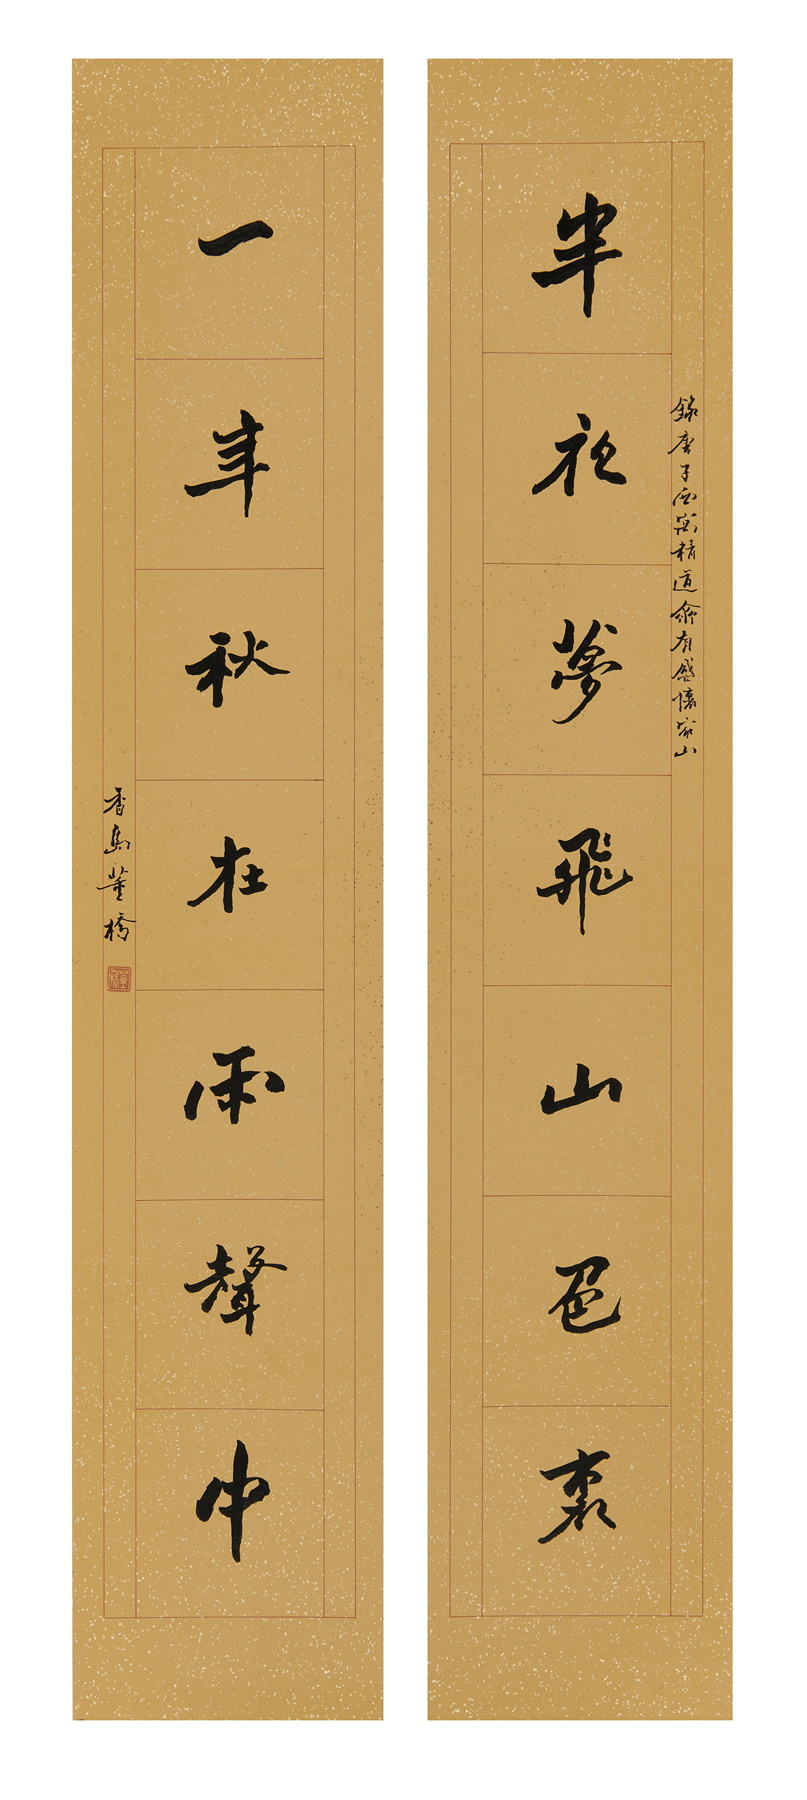 半夜夢飛山色裏
錄唐子西寓精道齋有感懷家山
一年秋在雨聲中
香島董橋